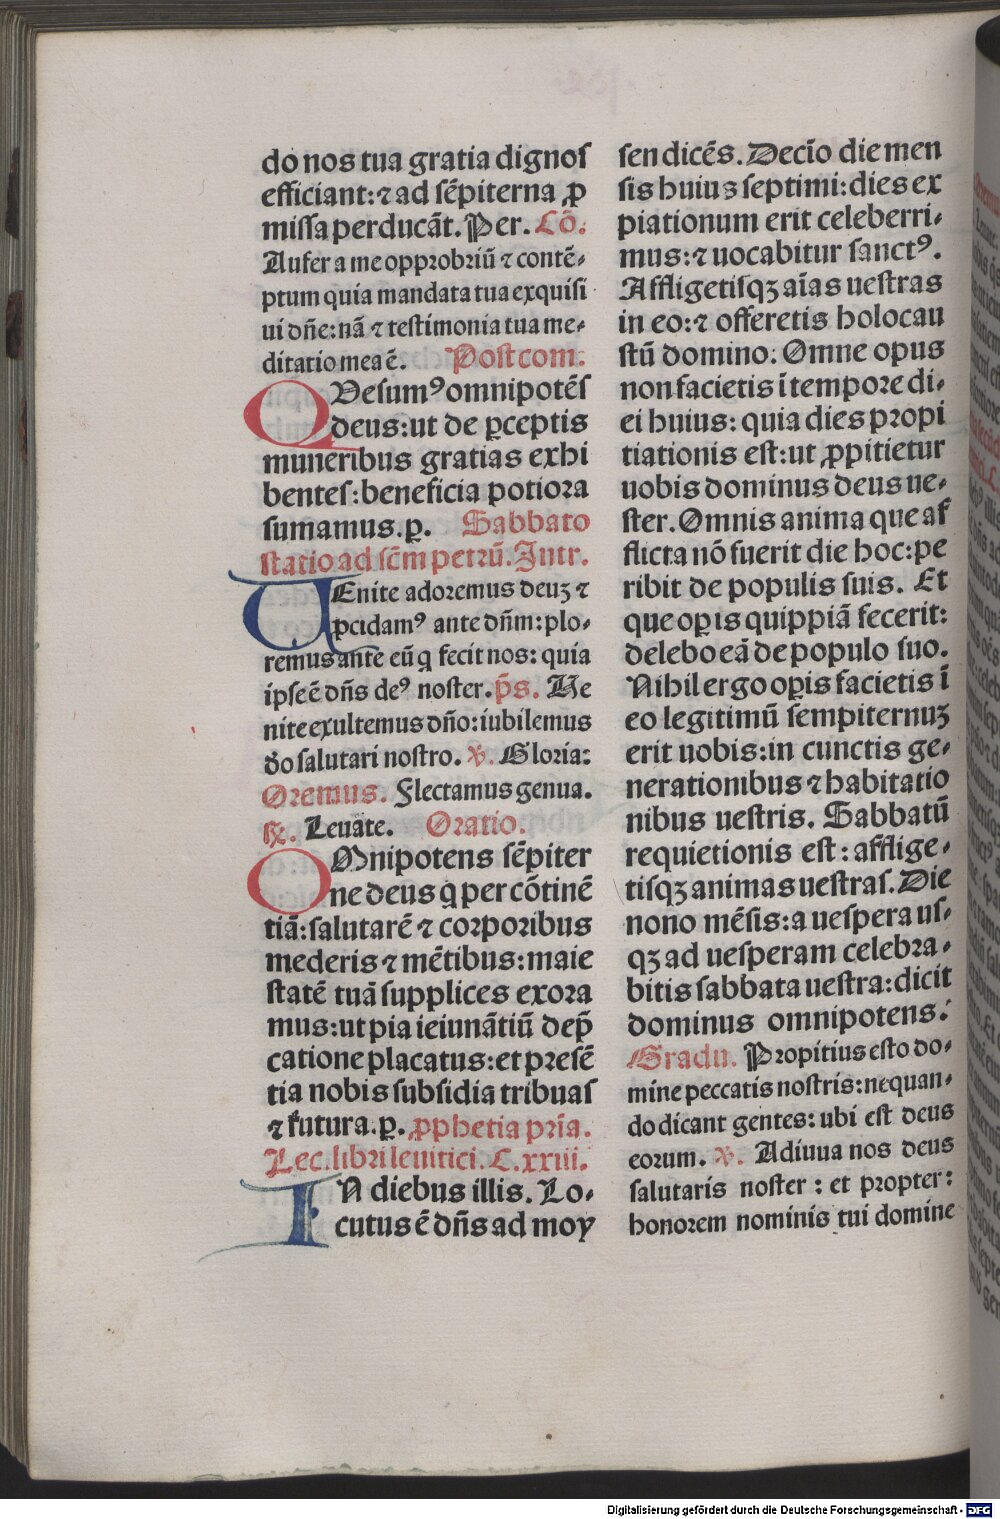 do nos tua gratia dignos
efficiant: ⁊ ad sēpiterna ꝓ
missa perducāt. Per. Cō.
Aufer a me opprobriū ⁊ contē-
ptum quia mandata tua exquisi
ui dñe: nā ⁊ testimonia tua me-
ditatio mea ē. Postcom.
QVesumꝰ omnipotēs
deus: ut de ꝑceptis
muneribus gratias exhi
bentes: beneficia potiora
sumamus. ꝑ. Sabbato
statio ad scm̄ petrū. Intr.
VEnite adoremus deuꝫ ⁊
ꝓcidamꝰ ante dñm: plo-
remus ante eū q̄ fecit nos: quia
ipse ē dñs deꝰ noster. p̄s. Ve
nite exultemus dño: iubilemus
deo salutari nostro. ℣. Gloria:
Oremus. Flectamus genua.
℟. Leuate. Oratio.
OMnipotens sēpiter
ne deus q̄ per cōtinē
tiā: salutarē ⁊ corporibus
mederis ⁊ mētibus: maie
statē tuā supplices exora
mus: ut pia ieiunātiū dep̄
catione placatus: et presē
tia nobis subsidia tribuas
⁊ futura. ꝑ. ꝓphetia pria.
Lec. libri leuitici. C. xxiii.
IN diebus illis. Lo-
cutus ē dñs ad moy
sen dicēs. Decīo die men
sis huius septimi: dies ex
piationum erit celeberri-
mus: ⁊ uocabitur sanctꝰ.
Affligetisqꝫ aīas uestras
in eo: ⁊ offeretis holocau
stū domino. Omne opus
non facietis ī tempore di-
ei huius: quia dies propi
tiationis est: ut ꝓpitietur
uobis dominus deus ue-
ster. Omnis anima que af
flicta nō fuerit die hoc: pe
ribit de populis suis. Et
que oꝑis quippiā fecerit:
delebo eā de populo suo.
Nihil ergo oꝑis facietis ī
eo legitimū sempiternuꝫ
erit uobis: in cunctis ge-
nerationibus ⁊ habitatio
nibus uestris. Sabbatū
requietionis est: afflige-
tisqꝫ animas uestras. Die
nono mēsis: a uespera us-
qꝫ ad uesperam celebra-
bitis sabbata uestra: dicit
dominus omnipotens.
Gradu. Propitius esto do-
mine peccatis nostris: nequan-
do dicant gentes: ubi est deus
eorum. ℣. Adiuua nos deus
salutaris noster: et propter:
honorem nominis tui domine
Digitalisierung gefördert durch die Deutsche Forschungsgemeinschaft - DFG